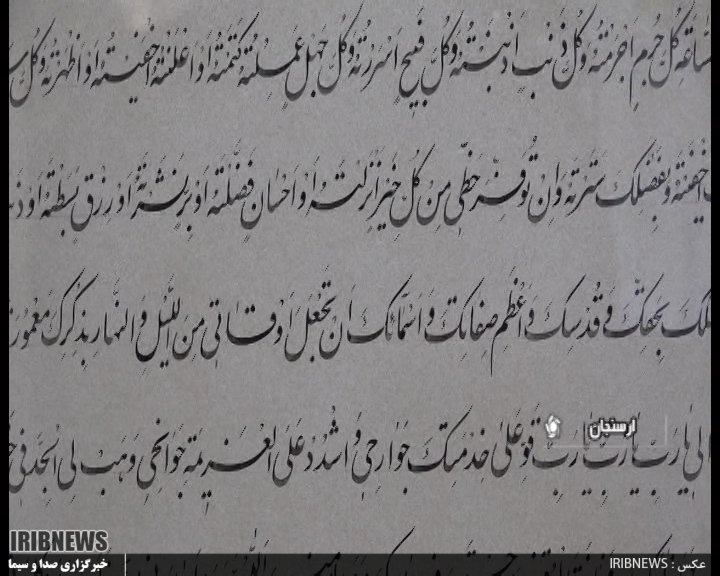 كُلَّ جُرْمٍ اَجْرَمْتُهُ وَكُلَّ ذَنْبٍ اَذْنَبْتُهُ وَكُلَّ قَبِيحٍ اَسْرَرْتُهُ وَكُلَّ جَهْلٍ عَمِلْتُهُ كَتَمْتُهُ اَوْ اَعْلَنْتُهُ اَخْفَيْتُهُ اَوْ اَظْهَرْتُهُ وَكُلَّ
وَبِفَضْلِكَ سَتَرْتَهُ وَاَنْ تُوَفِّرَ حَظّي مِنْ كُلِّ خَيْرٍ اَنْزَلْتَهُ اَوْ اِحْسَانٍ فَضَّلْتَهُ اَوْ بِرٍّ نَشَرْتَهُ اَوْ رِزْقٍ بَسَطْتَهُ اَوْ
بِحَقِّكَ وَقُدْسِكَ وَاَعْظَمِ صِفَاتِكَ وَاَسْمَائِكَ اَنْ تَجْعَلَ اَوْقَاتي مِنَ اللَّيْلِ وَالنَّهَارِ بِذِكْرِكَ
يَا رَبِّ يَا رَبِّ يَا رَبِّ قَوِّ عَلَىٰ خِدْمَتِكَ جَوَارِحي وَاشْدُدْ عَلَى الْعَزِيمَةِ جَوَانِحي وَهَبْ لِيَ الْجِدَّ في
ارسنجان
IRIBNEWS
خبرگزاری صدا و سیما
عکس : IRIBNEWS